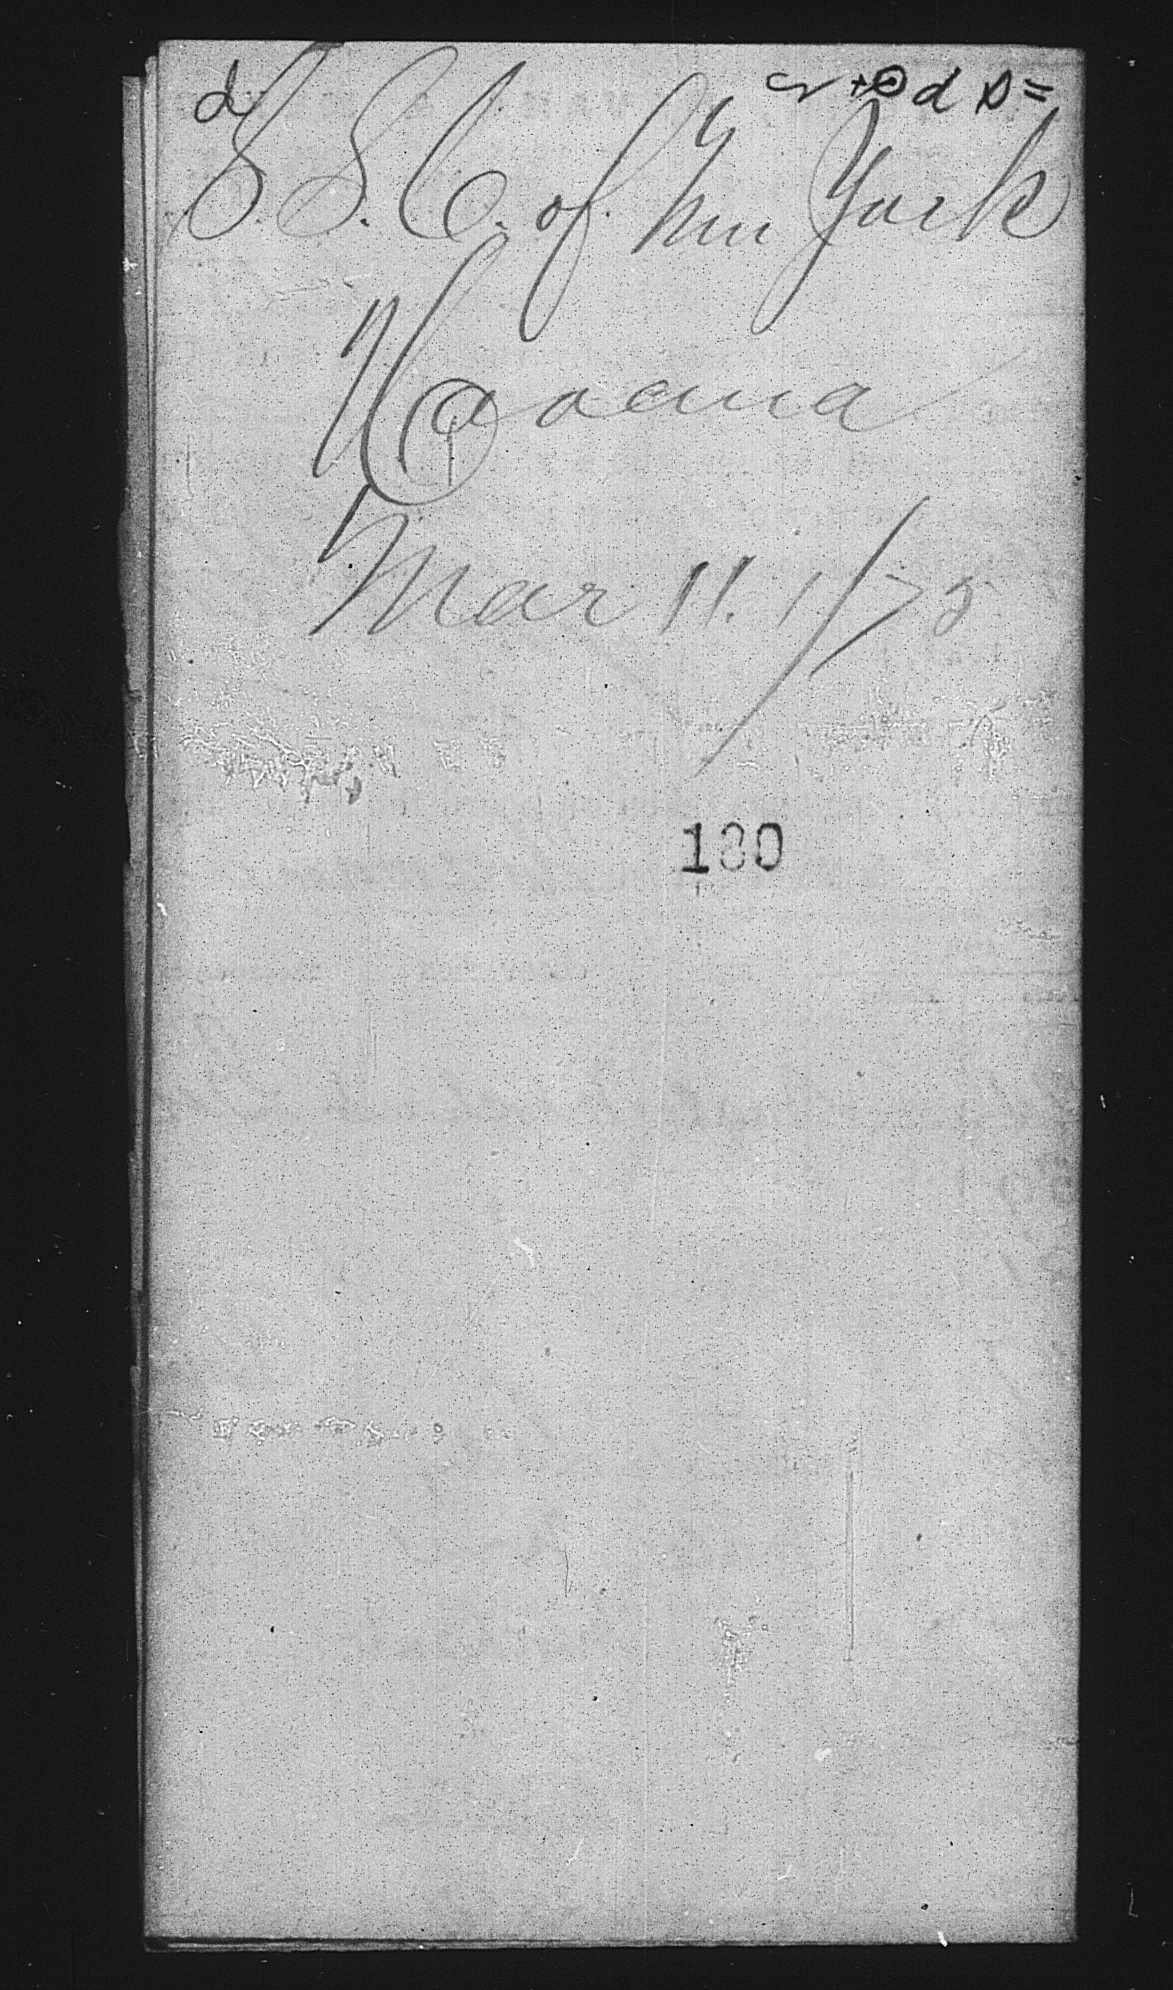 d
S. S. C. of New York
Havana
Mar 11. 1/75
130